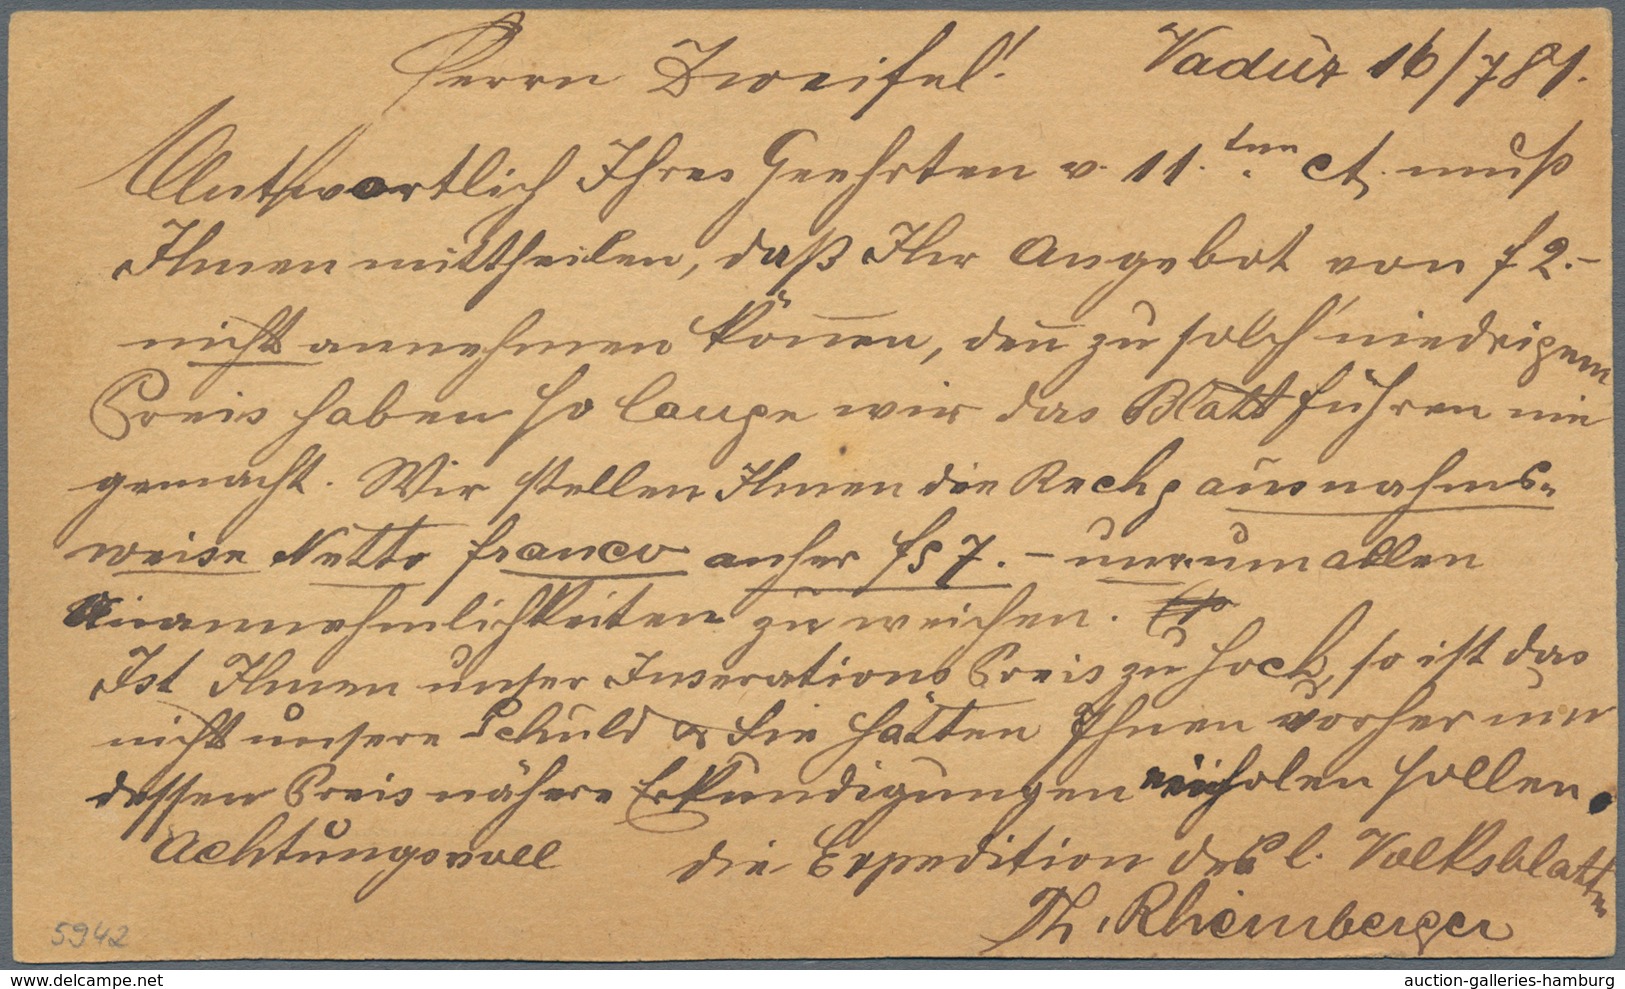 Herrn Zweifel! Vaduz 16/7 81.
Antwortlich Ihres Geehrten v. 11. ten ct. muß
Ihnen mittheilen, daß Ihr Angebot von f 2.-
nicht annehmen können, denn zu solch' niedrigem
Preis haben so lange wir das Blatt führen nie
gemacht. Wir stellen Ihnen die Rechg ausnahms-
weise Netto franco anher fs 7.- nur um allen
Unannehmlichkeiten zu weichen.
Ist Ihnen unser Inserations Preis zu hoch, so ist das
nicht unsere Schuld & Sie hätten Ihnen vorher um
dessen Preis nähere Erkundigungen einholen sollen.
Achtungsvoll die Expedition des l. Volksblattes
Th. Rheinberger
5942
www.philasearch.com
auction-galleries-hamburg